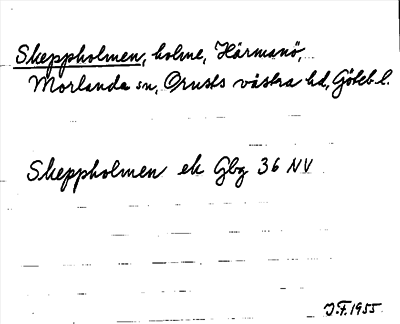 Skeppholmen, holme, Härmanö,
Morlanda sn, Orusts västra hd, Göteb l.
Skeppholmen ek Gbg 36 NV
J.F. 1955